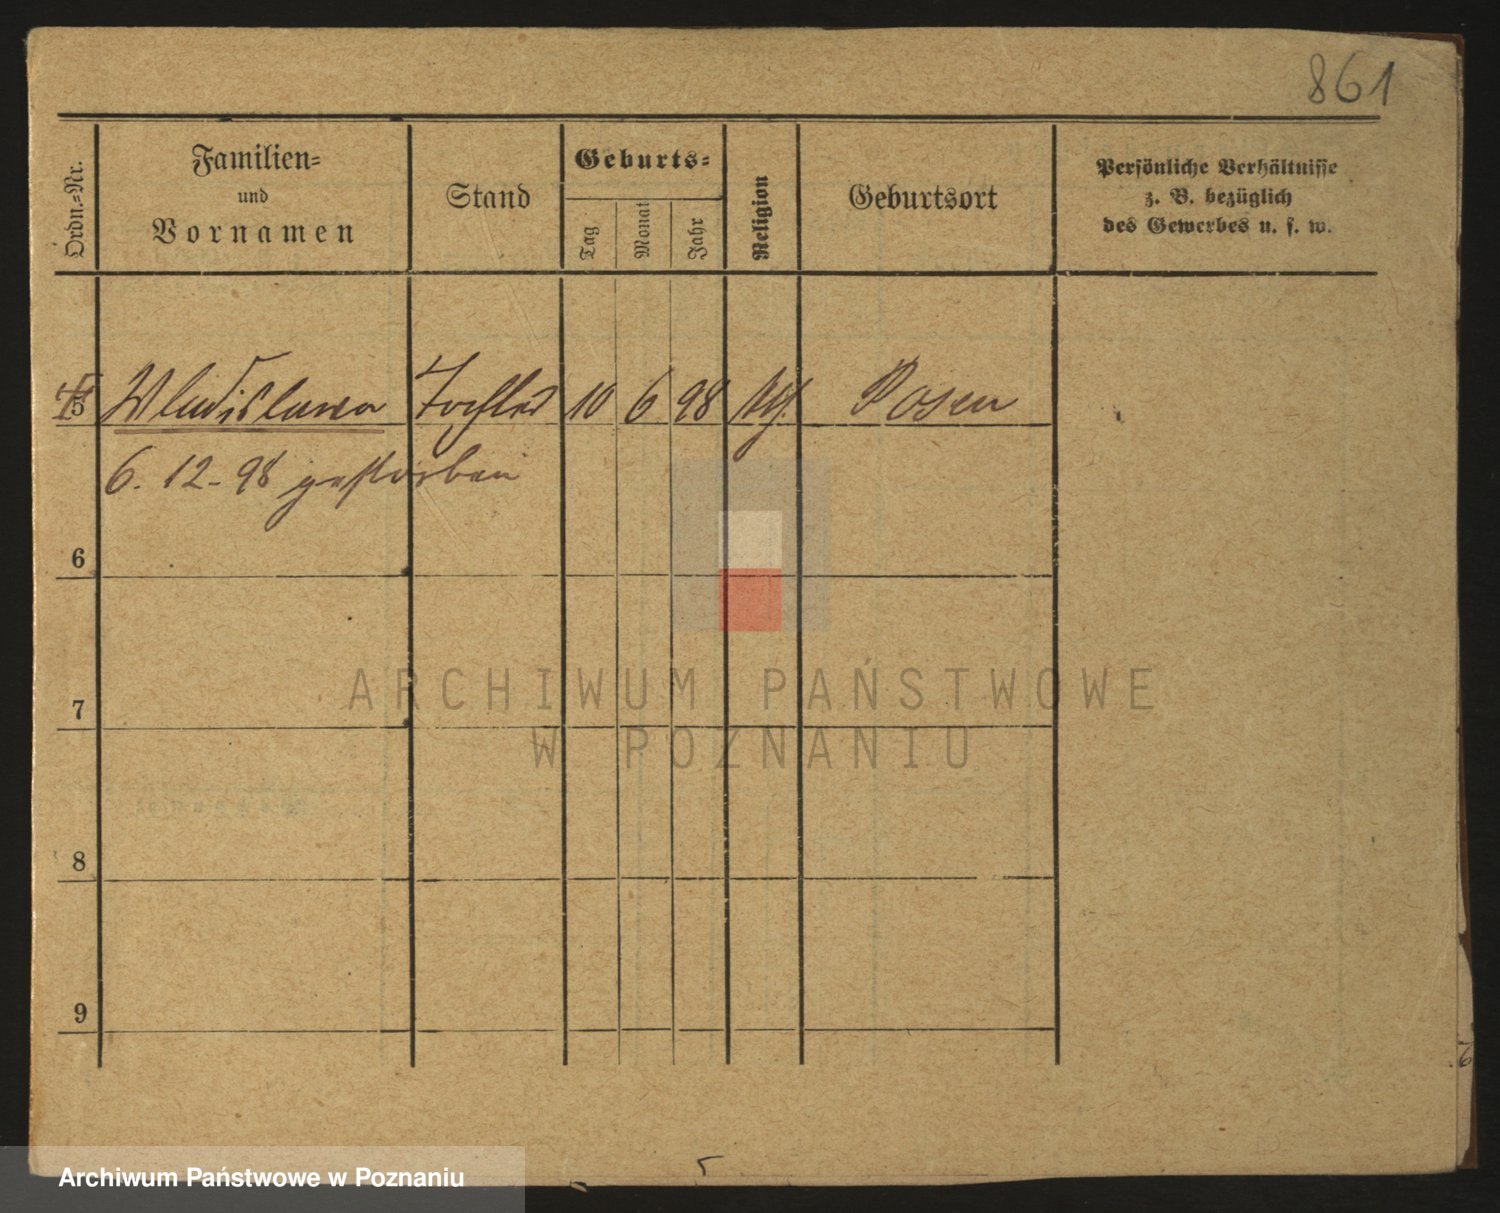 861
Ordn.-Nr.
Familien-
und
Vornamen
Stand
Geburts-
Tag
Monat
Jahr
Religion
Geburtsort
Persönliche Verhältnisse
z. B. bezüglich
des Gewerbes u. s. w.
5 Wladislawa Tochter 10 6 98 Posen
6. 12. 98 gestorben
6
7
8
9
ARCHIWUM PAŃSTWOWE
W POZNANIU
Archiwum Państwowe w Poznaniu